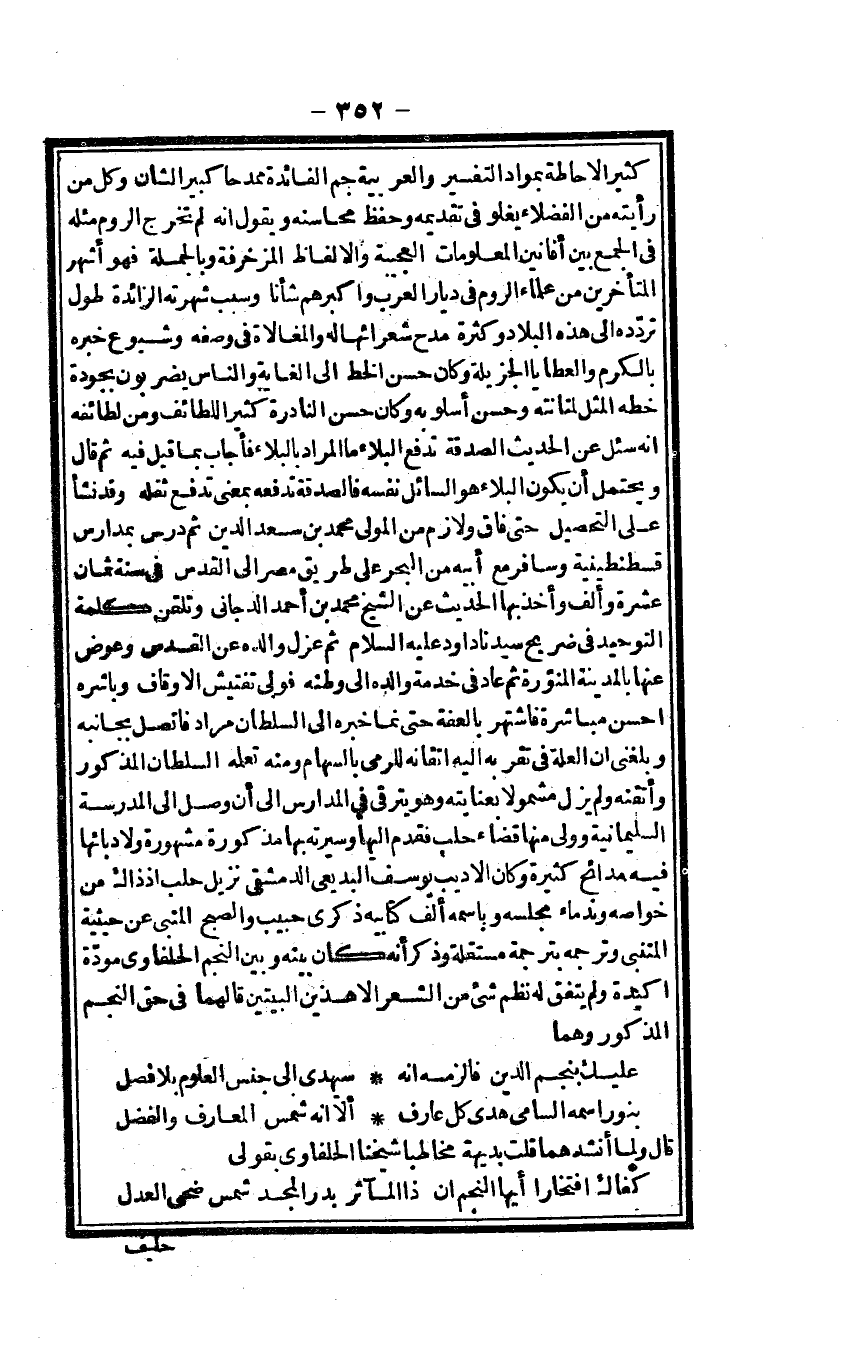 - ٣٥٢ -
كثير الاحاطة بمواد التفسير والعربية جم الفائدة ممدحا كبير الشان وكل من
رأيته من الفضلاء يغلو فى تقديمه وحفظ محاسنه ويقول انه لم تخرج الروم مثله
فى الجمع بين أفانين المعلومات العجيبة والالفاظ المزخرفة وبالجملة فهو أشهر
المتأخرين من علماء الروم فى ديار العرب واكبرهم شأنا وسبب شهرته الزائدة طول
تردّده الى هذه البلاد وكثرة مدح شعرائها له والمغالاة فى وصفه وشيوع خبره
بالكرم والعطايا الجزيلة وكان حسن الخط الى الغاية والناس يضربون بجودة
خطه المثل لمتانته وحسن أسلوبه وكان حسن النادرة كثير اللطائف ومن لطائفه
انه سئل عن الحديث الصدقة تدفع البلاء ما المراد بالبلاء فأجاب بما قيل فيه ثم قال
ويحتمل أن يكون البلاء هو السائل نفسه فالصدقة تدفعه بمعنى تدفع ثقله وقد نشأ
على التحصيل حتى فاق ولازم من المولى محمد بن سعد الدين ثم درس بمدارس
قسطنطينية وسافر مع أبيه من البحر على طريق مصر الى القدس فى سنة ثمان
عشرة وألف وأخذ بها الحديث عن الشيخ محمد بن أحمد الدجانى وتلقن كلمة
التوحيد فى ضريح سيدنا داود عليه السلام ثم عزل والده عن القدس وعوض
عنها بالمدينة المنوّرة ثم عاد فى خدمة والده الى وطنه فولى تفتيش الاوقاف وباشره
احسن مباشرة فاشتهر بالعفة حتى نما خبره الى السلطان مراد فاتصل بجانبه
وبلغنى ان العلة فى تقربه اليه اتقانه للرمى بالسهام ومنه تعلمه السلطان المذكور
وأتقنه ولم يزل مشمولا بعنايته وهو يترقى فى المدارس الى أن وصل الى المدرسة
السليمانية وولى منها قضاء حلب فقدم اليها وسيرته بها مذكورة مشهورة ولادبائها
فيه مدائح كثيرة وكان الاديب يوسف البديعى الدمشقى نزيل حلب اذذاك من
خواصه وندماء مجلسه وباسمه ألف كتابيه ذكرى حبيب والصبح المنبى عن حيثية
المتنبى وترجمه بترجمة مستقلة وذكر أنه كان بينه وبين النجم الحلفاوى مودّة
اكيدة ولم يتفق له نظم شئ من الشعر الا هذين البيتين قالهما فى حق النجم
المذكور وهما
عليك بنجم الدين فالزمه انه * سيهدى الى جنس العلوم بلا فصل
بنور اسمه السامى هدى كل عارف * ألا انه شمس المعارف والفضل
قال ولما أنشدهما قلت بديهة مخاطبا شيخنا الحلفاوى بقولى
كفاك افتخارا أيها النجم ان ذا المآثر بدر المجد شمس ضحى العدل
حليف